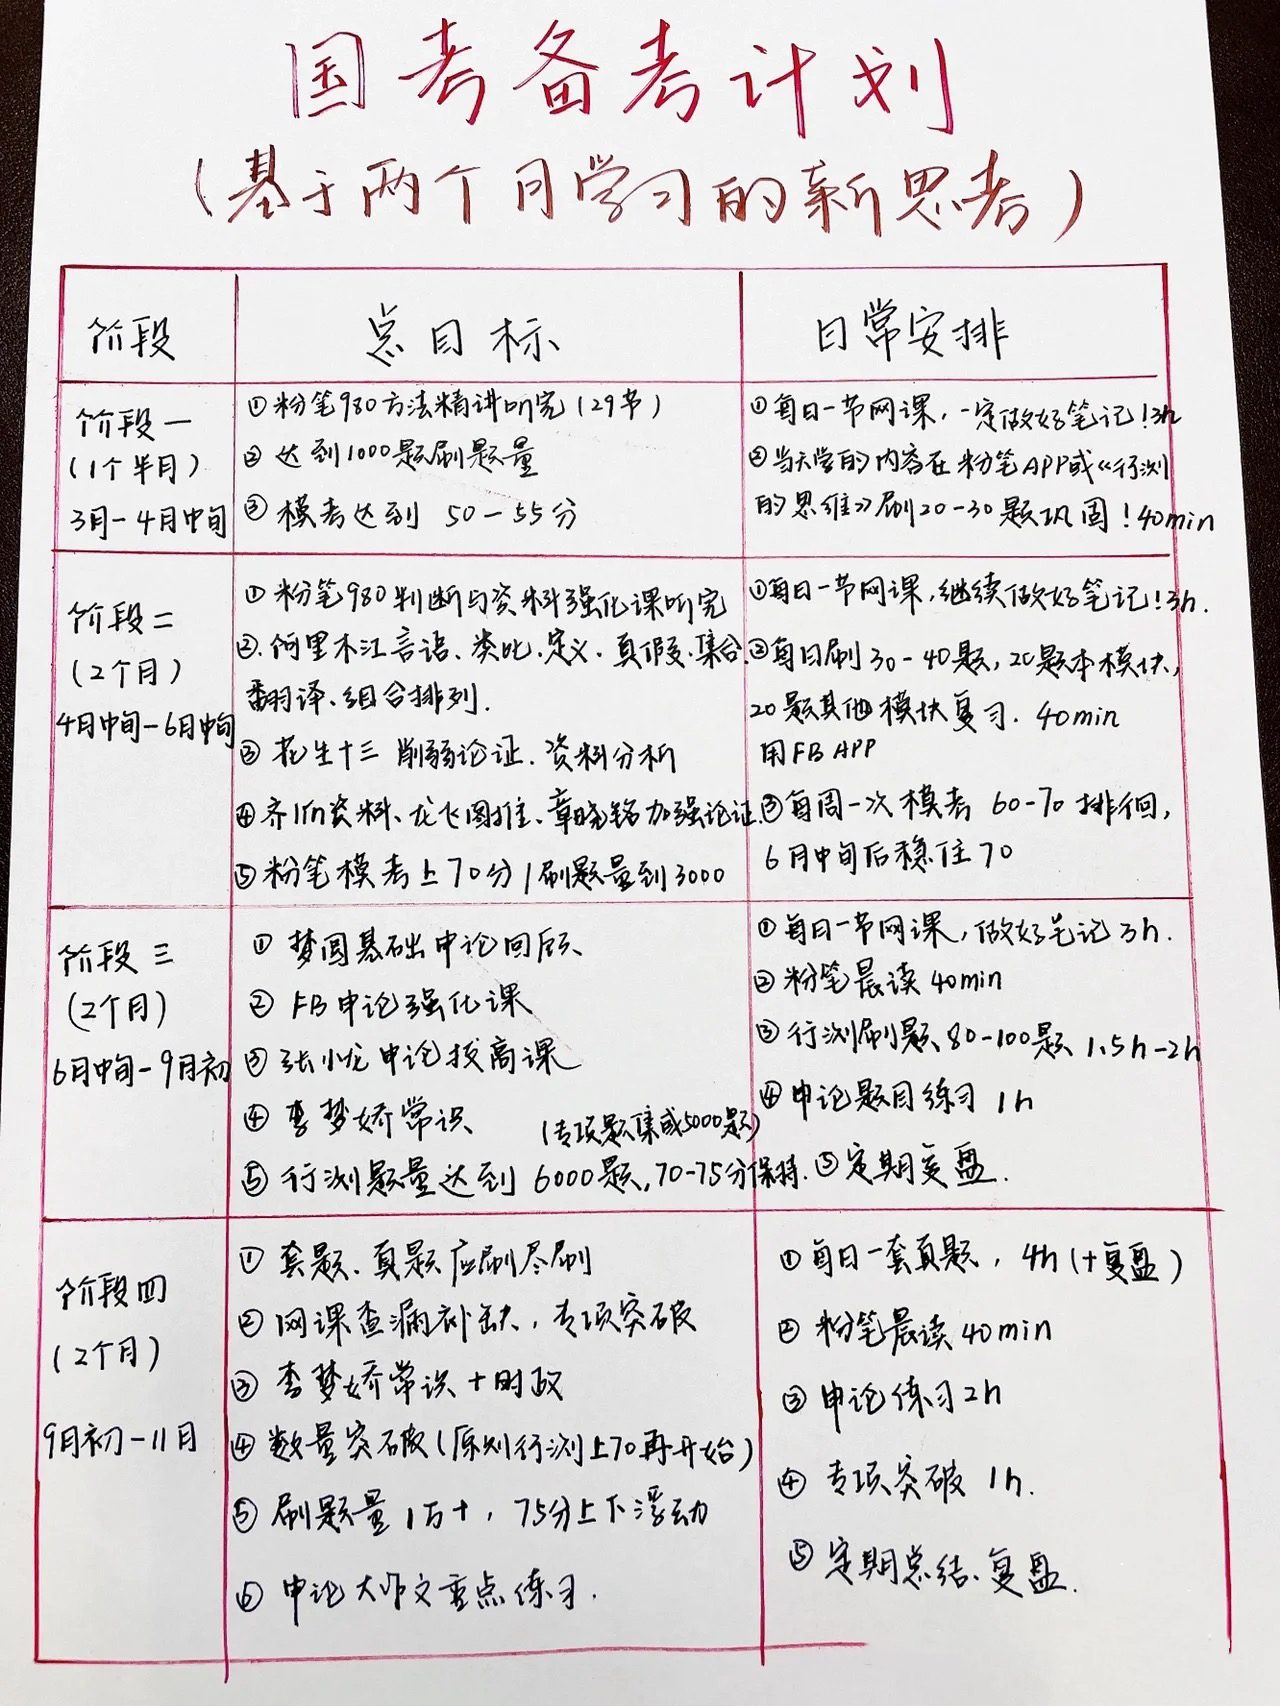 国考备考计划
(基于两个月学习的新思考)
阶段
总目标
日常安排
阶段一
(1个半月)
3月-4月中旬
①粉笔980方法精讲听完(29节)
②达到1000题刷题量
③模考达到 50-55分
①每日一节网课,一定做好笔记!3h
②当天学的内容在粉笔APP或《行测
的思维》刷20-30题巩固!40min
阶段二
(2个月)
4月中旬-6月中旬
①粉笔980判断与资料强化课听完
②.阿里木江言语、类比.定义.真假.集合.
翻译、组合排列.
③花生十三 削弱论证.资料分析
④齐麟资料、龙飞图推、章晓铭加强论证.
⑤粉笔模考上70分/刷题量到3000
①每日一节网课,继续做好笔记!3h.
②每日刷30-40题,20题本模块,
20题其他模块复习. 40min
用FB APP
③每周一次模考 60-70排徊,
6月中旬后稳住70
阶段三
(2个月)
6月中旬-9月初
①梦圆基础申论回顾
②FB申论强化课
③张小龙申论拔高课
④李梦娇常识 (专项题集或5000题)
⑤行测题量达到6000题,70-75分保持.
①每日一节网课,做好笔记3h.
②粉笔晨读40min
③行测刷题80-100题 1.5h-2h
④申论题目练习 1h
⑤定期复盘.
阶段四
(2个月)
9月初-11月
①套题、真题应刷尽刷
②网课查漏补缺,专项突破
③李梦娇常识+时政
④数量突破(原则行测上70再开始)
⑤刷题量1万+,75分上下浮动
⑥申论大作文重点练习.
①每日一套真题,4h(+复盘)
②粉笔晨读40min
③申论练习2h
④专项突破 1h.
⑤定期总结、复盘.